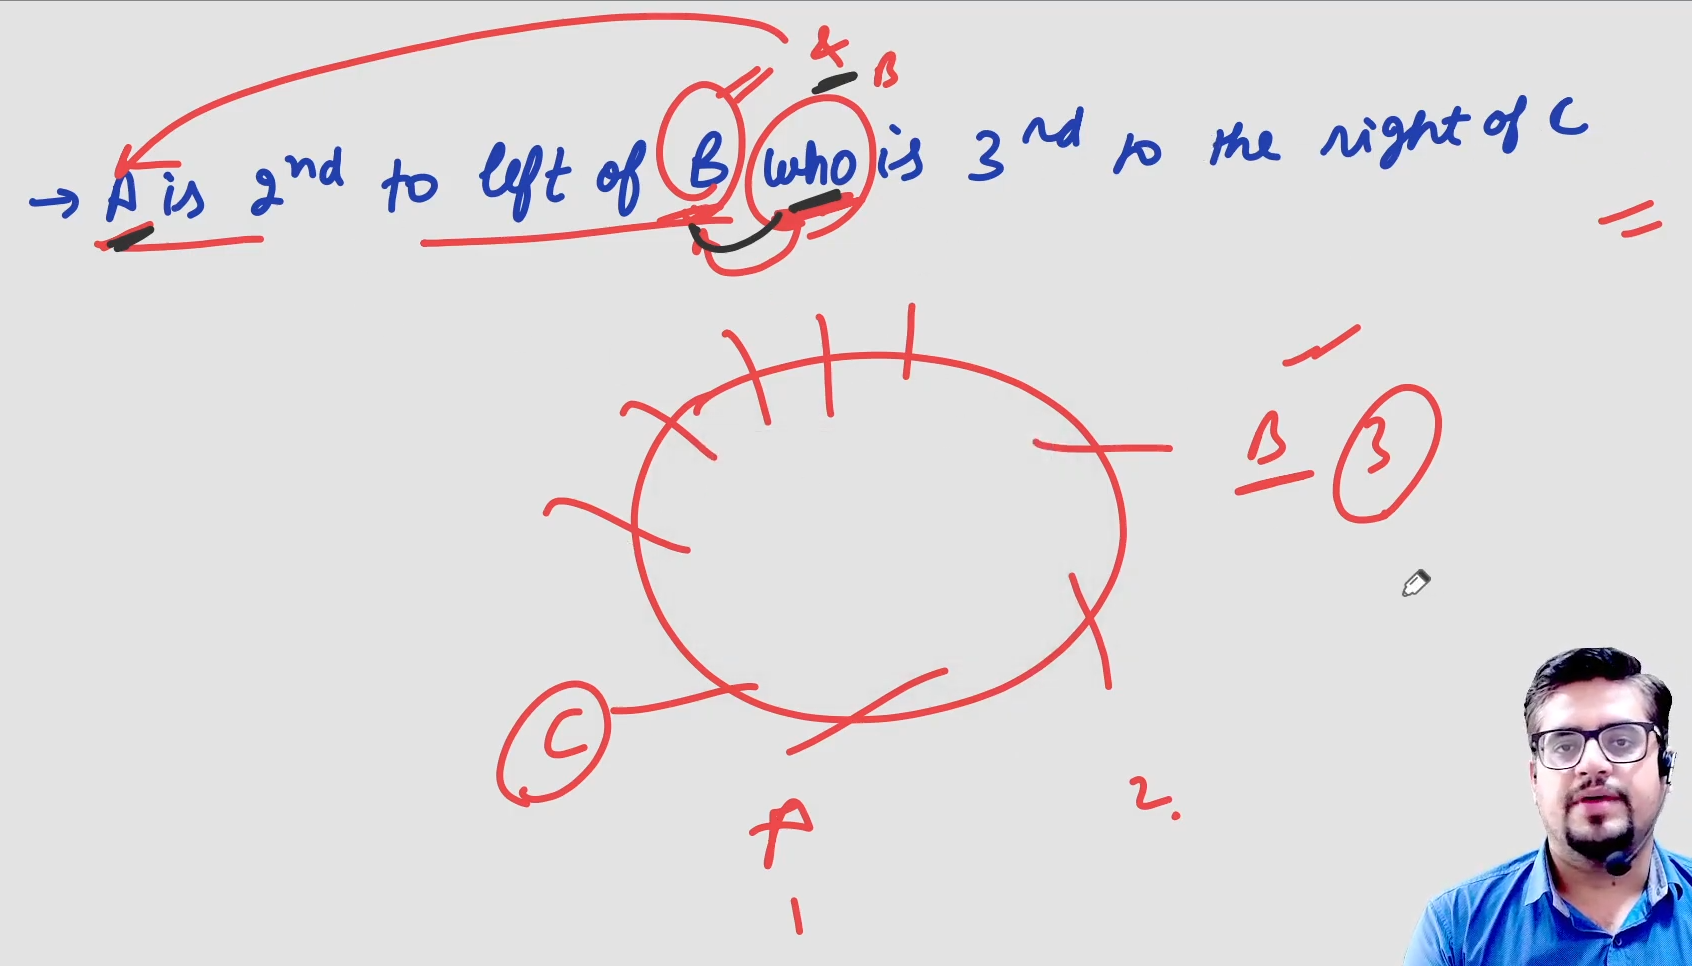 & B
→ A is 2nd to left of B who is 3rd to the right of C
B 3
C
A 2.
1